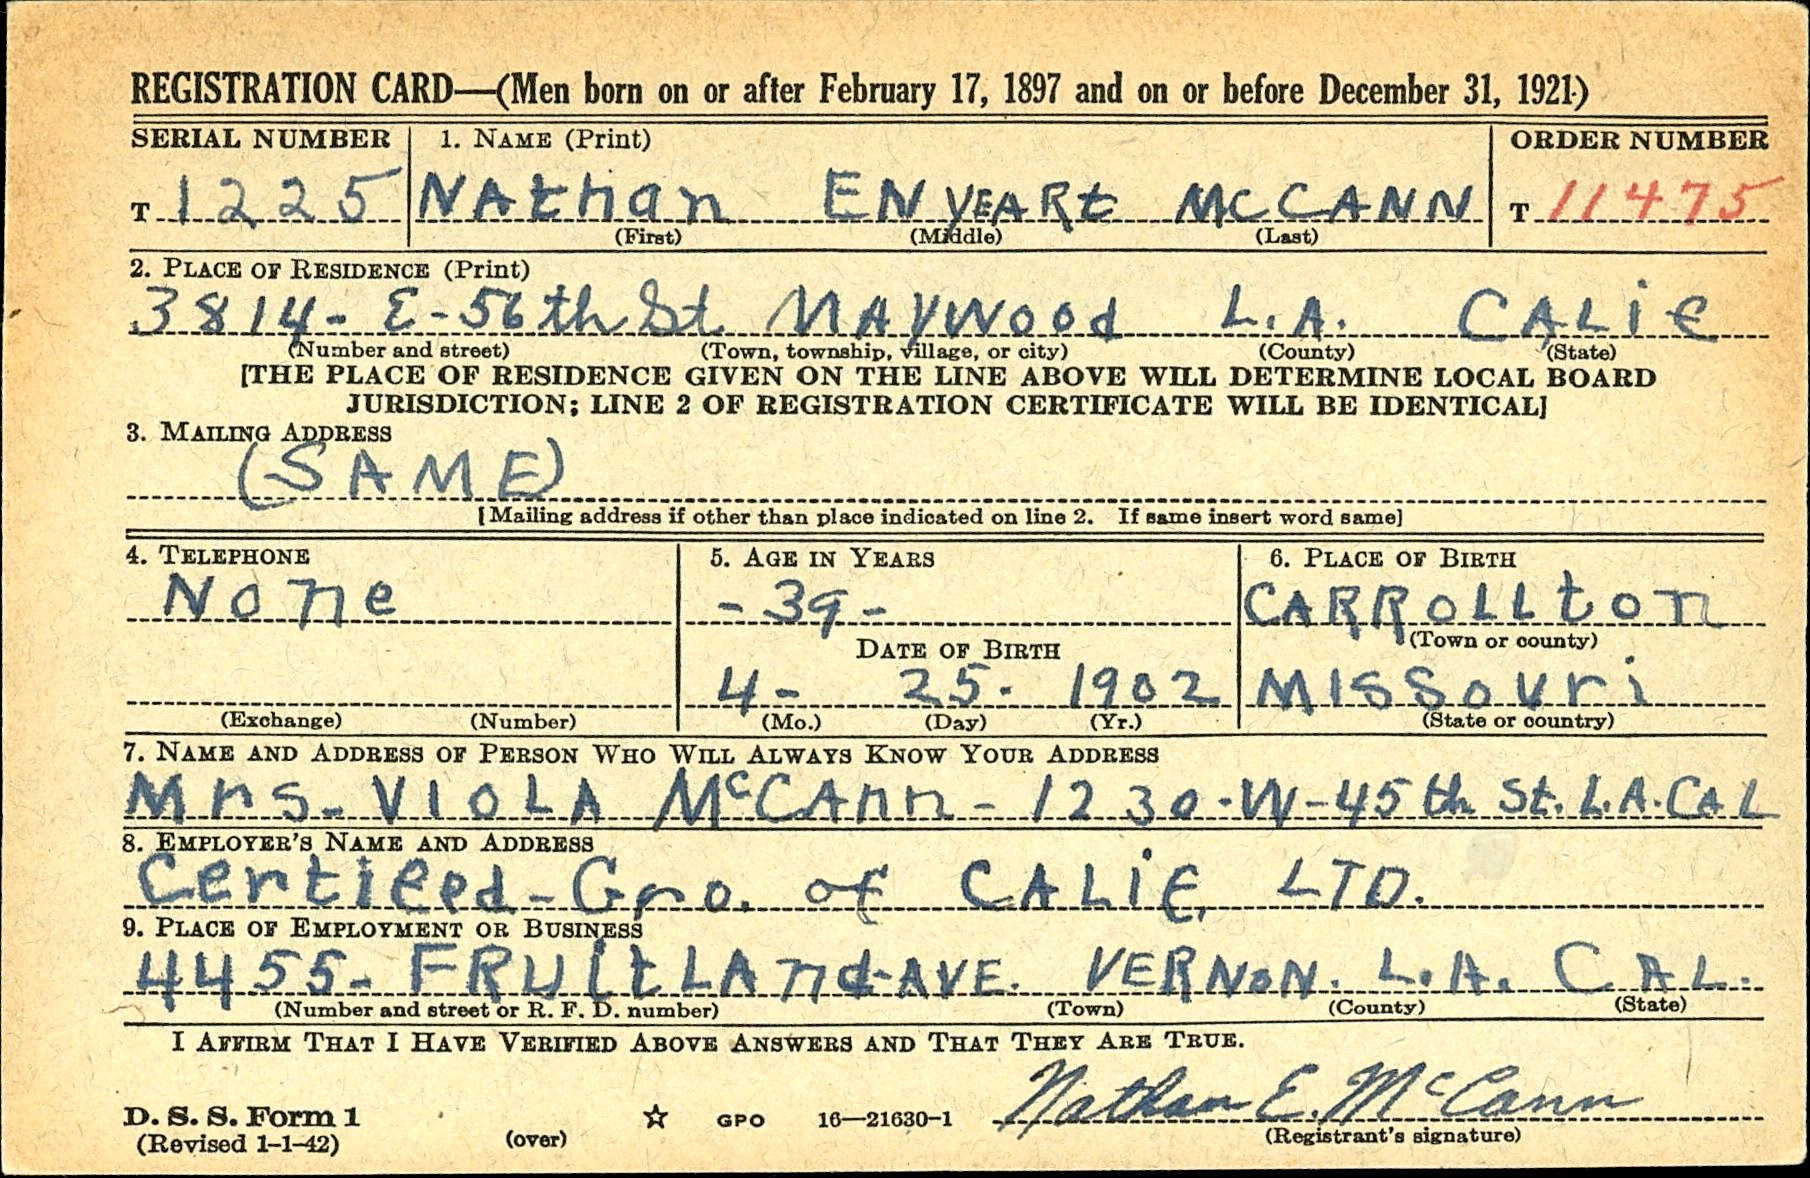 REGISTRATION CARD—(Men born on or after February 17, 1897 and on or before December 31, 1921)
SERIAL NUMBER 1. NAME (Print) ORDER NUMBER
T 1225 NAthan ENYEARt MCCANN T 11475
(First) (Middle) (Last)
2. PLACE OF RESIDENCE (Print)
3814- E-56th St MAYWood L.A. CALif
(Number and street) (Town, township, village, or city) (County) (State)
[THE PLACE OF RESIDENCE GIVEN ON THE LINE ABOVE WILL DETERMINE LOCAL BOARD
JURISDICTION; LINE 2 OF REGISTRATION CERTIFICATE WILL BE IDENTICAL]
3. MAILING ADDRESS
(SAME)
[Mailing address if other than place indicated on line 2. If same insert word same]
4. TELEPHONE 5. AGE IN YEARS 6. PLACE OF BIRTH
None -39- CARRoLLton
DATE OF BIRTH (Town or county)
4- 25- 1902 MISSouri
(Exchange) (Number) (Mo.) (Day) (Yr.) (State or country)
7. NAME AND ADDRESS OF PERSON WHO WILL ALWAYS KNOW YOUR ADDRESS
Mrs- VIoLA McCAnn - 1230-W-45th St. L.A. CAL
8. EMPLOYER'S NAME AND ADDRESS
Certified-Gro. of CALif, LTD.
9. PLACE OF EMPLOYMENT OR BUSINESS
4455- FRUItLAnd-AVE. VERNoN. L.A. CAL.
(Number and street or R. F. D. number) (Town) (County) (State)
I AFFIRM THAT I HAVE VERIFIED ABOVE ANSWERS AND THAT THEY ARE TRUE.
Nathan E. McCann
D. S. S. Form 1 GPO 16—21630-1
(Revised 1-1-42) (over) (Registrant's signature)